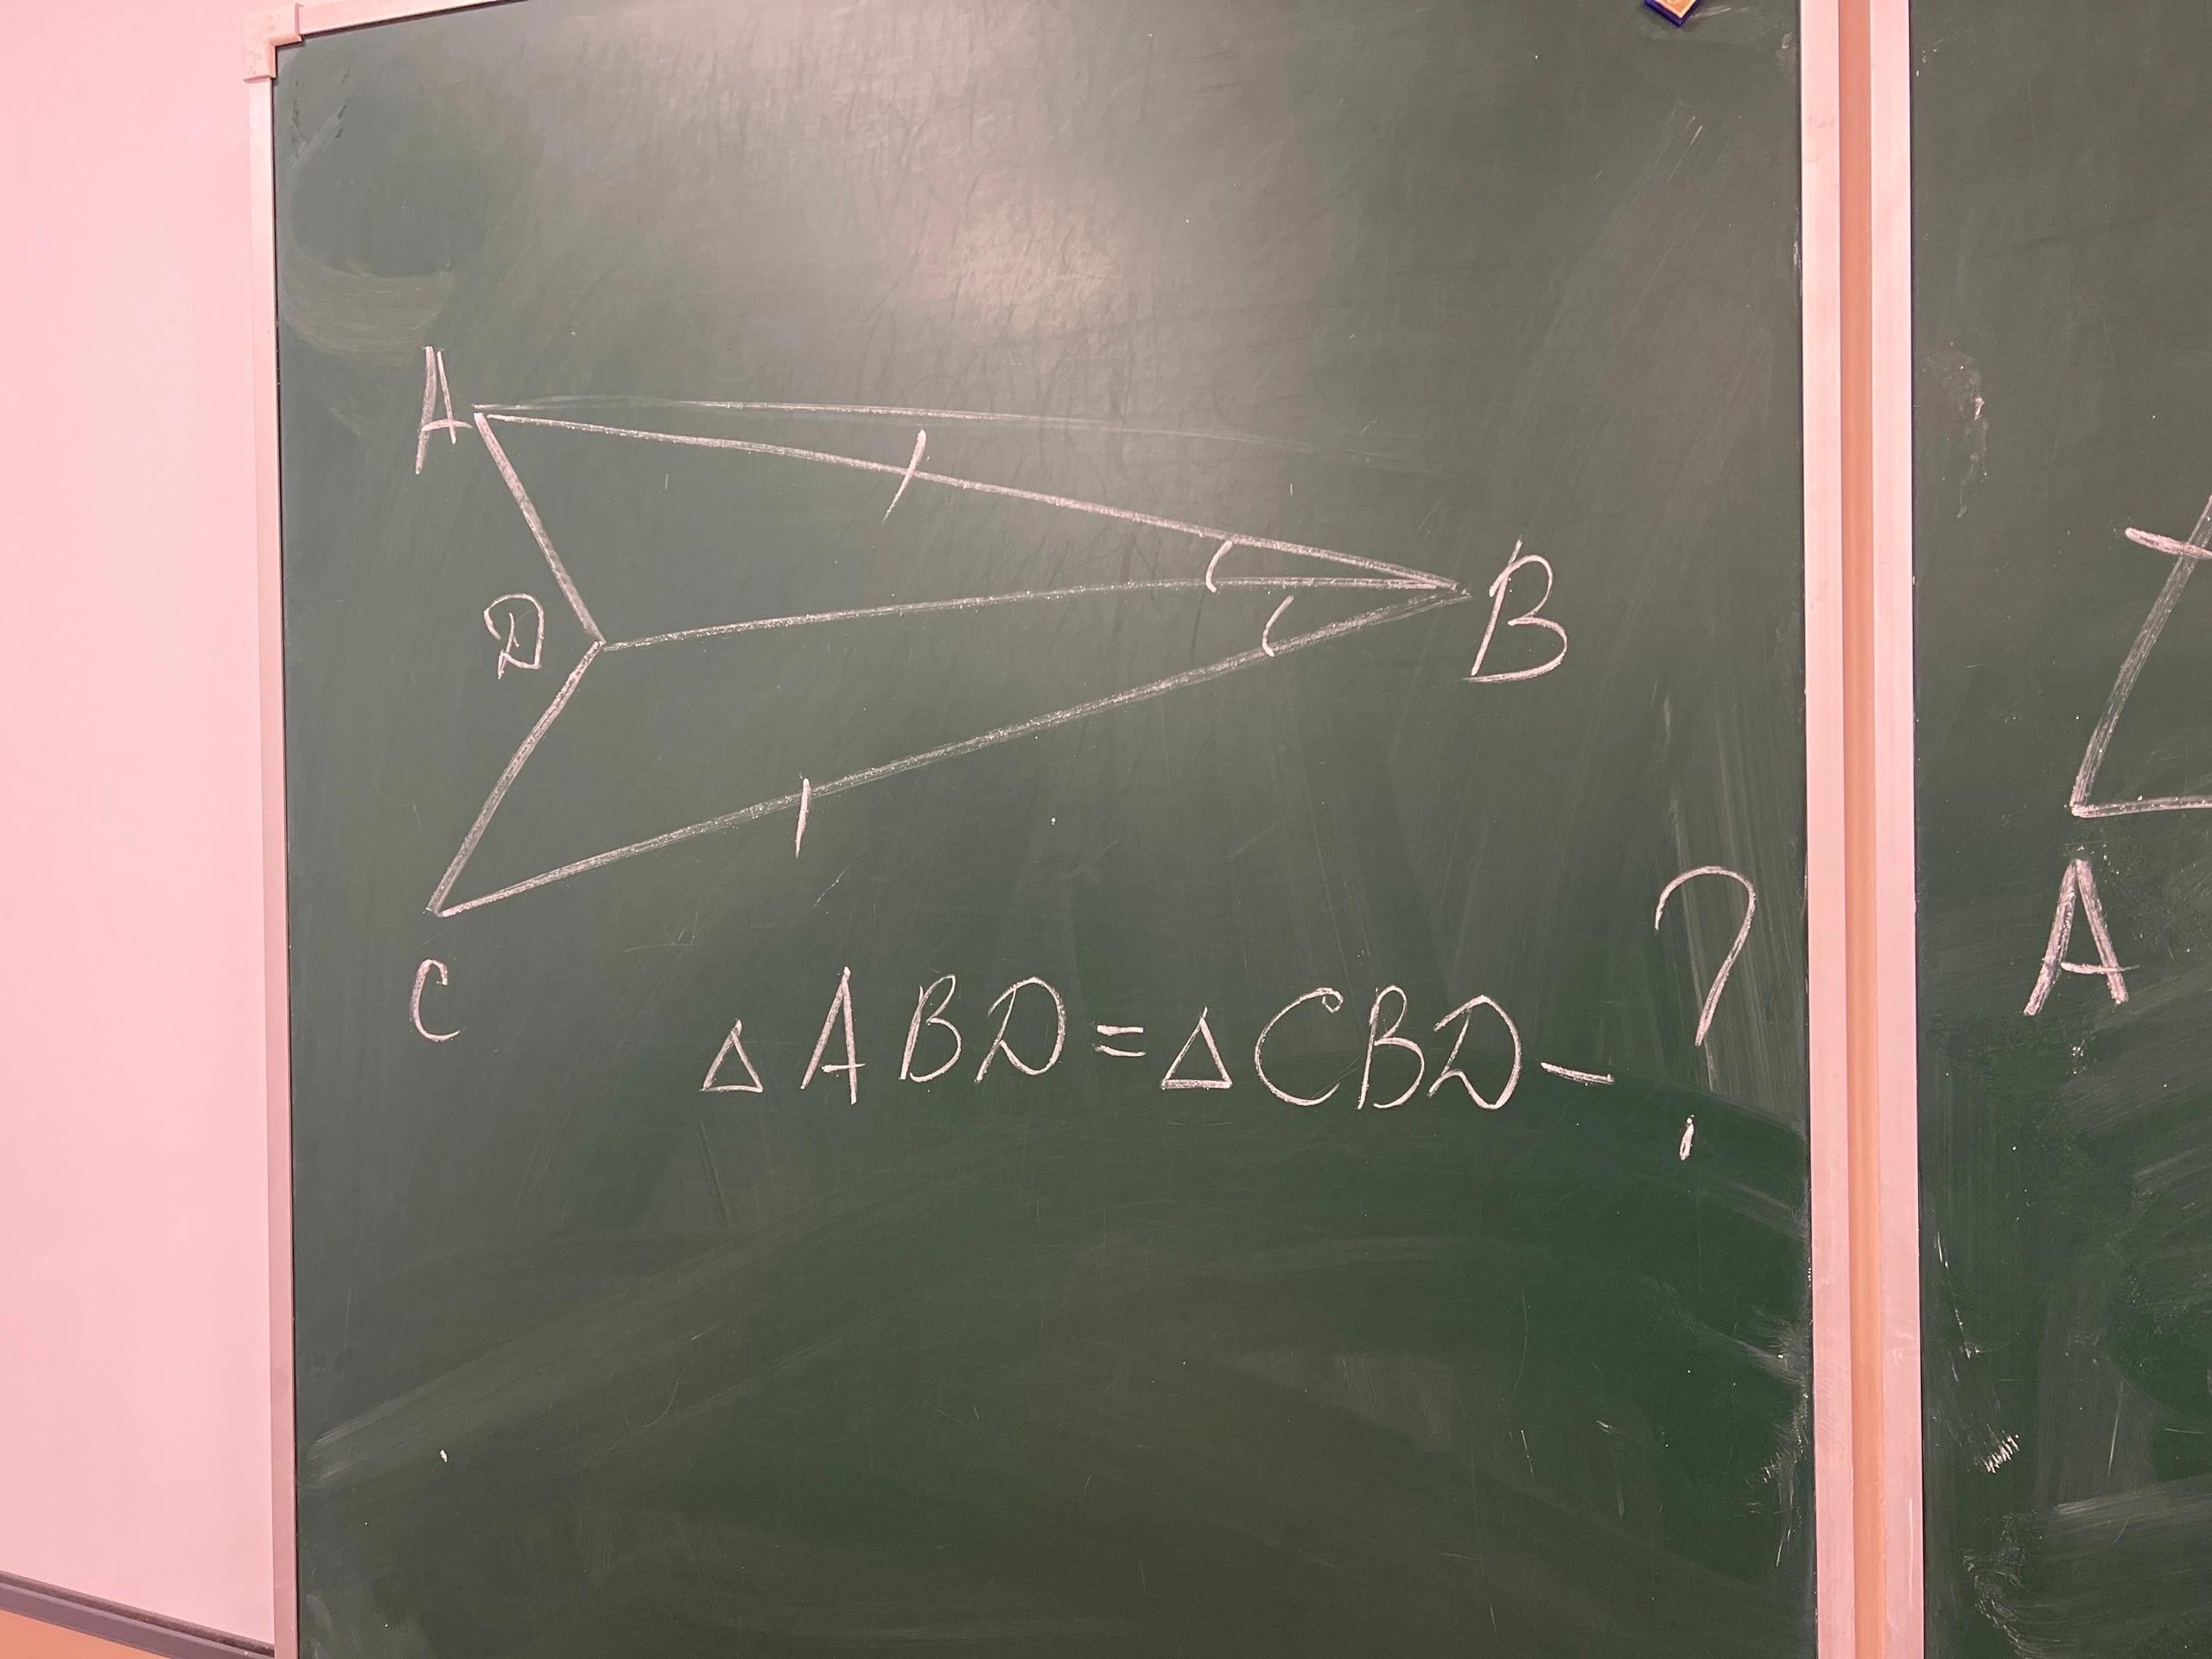 A
D
B
C
△ABD=△CBD-?
A